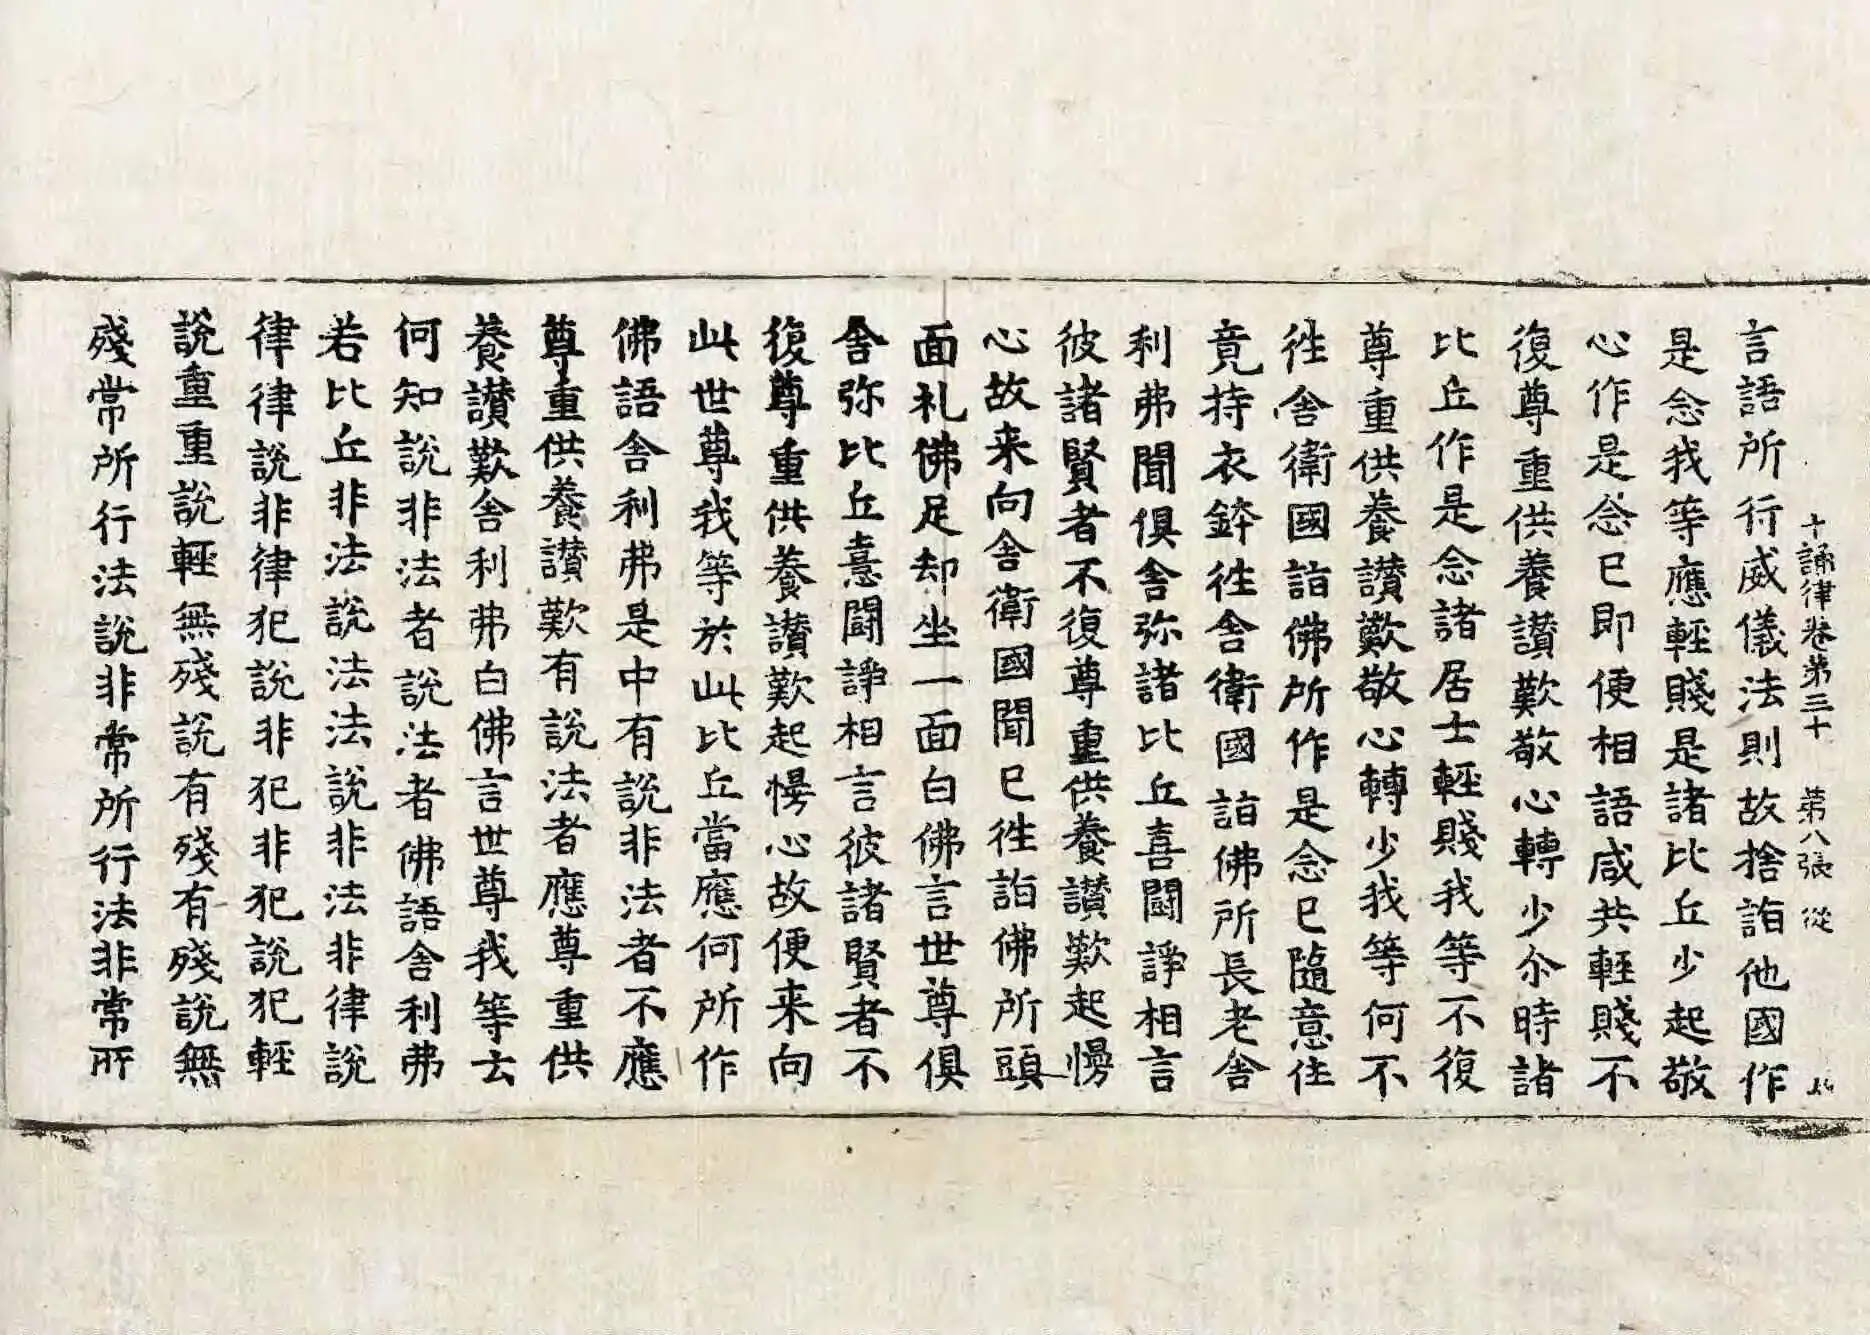 十誦律卷第三十　第八張　從
言語所行威儀法則故捨詣他國作
是念我等應輕賤是諸比丘少起敬
心作是念已即便相語咸共輕賤不
復尊重供養讃歎敬心轉少尒時諸
比丘作是念諸居士輕賤我等不復
尊重供養讃歎敬心轉少我等何不
徃舍衛國詣佛所作是念已隨意住
竟持衣鉢徃舍衛國詣佛所長老舍
利弗聞俱舍弥諸比丘喜鬪諍相言
彼諸賢者不復尊重供養讃歎起慢
心故来向舍衛國聞已徃詣佛所頭
面礼佛足却坐一面白佛言世尊俱
舍弥比丘憙鬪諍相言彼諸賢者不
復尊重供養讃歎起慢心故便来向
此世尊我等於此比丘當應何所作
佛語舍利弗是中有說非法者不應
尊重供養讃歎有說法者應尊重供
養讃歎舍利弗白佛言世尊我等云
何知說非法者說法者佛語舍利弗
若比丘非法說法法說非法非律說
律律說非律犯說非犯非犯說犯輕
說重重說輕無殘說有殘有殘說無
殘常所行法說非常所行法非常所